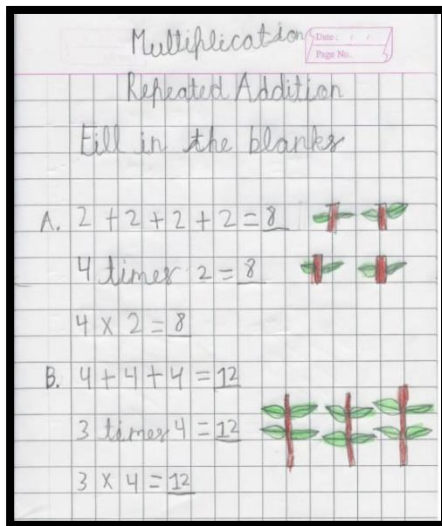 Multiplication
Date: / /
Page No.
Repeated Addition
Fill in the blanks
A. 2 + 2 + 2 + 2 = 8
4 times 2 = 8
4 x 2 = 8
B. 4 + 4 + 4 = 12
3 times 4 = 12
3 x 4 = 12